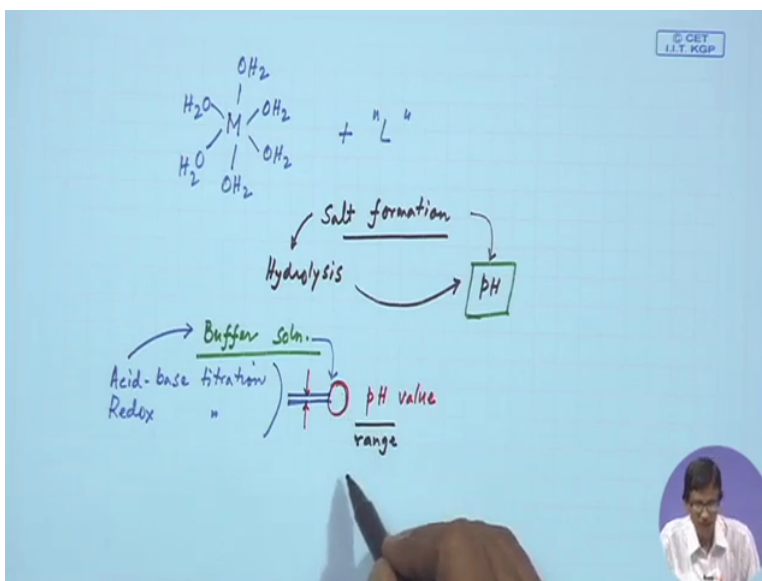 © CET
I.I.T. KGP
OH2
H2O OH2
M + "L"
H2O OH2
OH2
Salt formation
Hydrolysis pH
Buffer soln.
Acid-base titration
Redox "
pH value
range